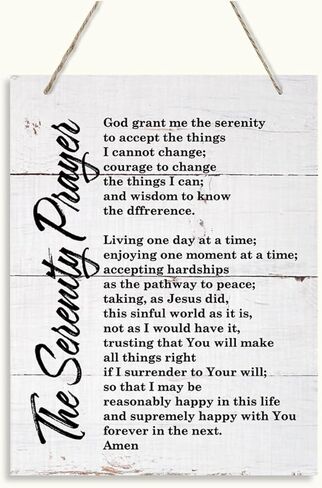 The Serenity Prayer
God grant me the serenity
to accept the things
I cannot change;
courage to change
the things I can;
and wisdom to know
the dffrerence.
Living one day at a time;
enjoying one moment at a time;
accepting hardships
as the pathway to peace;
taking, as Jesus did,
this sinful world as it is,
not as I would have it,
trusting that You will make
all things right
if I surrender to Your will;
so that I may be
reasonably happy in this life
and supremely happy with You
forever in the next.
Amen